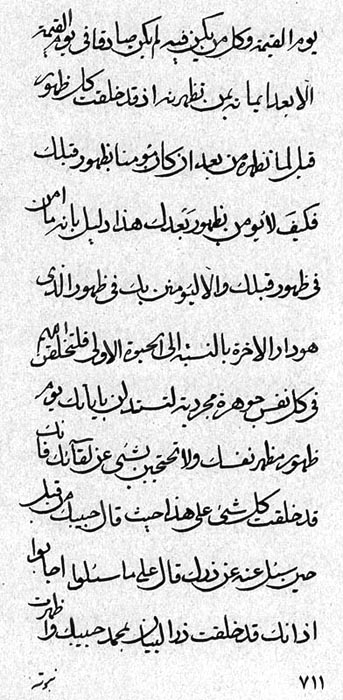 يوم القيمة وكل من يكن فيه لم يكن صادقا في يوم القيمة
الا بعد ايمانه بمن تظهرنه اذ قد خلقت كل ظهور
قبل لما تظهره من بعد اذ من كان مؤمنا بظهور قبلك
فكيف لا يؤمن بظهور بعدك هذا دليل بانه ما امن
في ظهور قبلك والا ليؤمنن بك في ظهور الذي
هو دار الاخرة بالنسبة الى الحيوة الاولى فلتخلقن اللهم
في كل نفس جوهرة مجردية لتستدلن باياتك يوم
ظهور مظهر نفسك ولا تحتجبن بشئ عن لقائك فانك
قد خلقت كل شئ على هذا حيث قال حبيبك من قبل
حين سئل عنه عن ذر قال على ما سئلوا اجابوا
اذ انك قد خلقت ذر البيان بمحمد حبيبك واظهرت
نبوته
٧١١